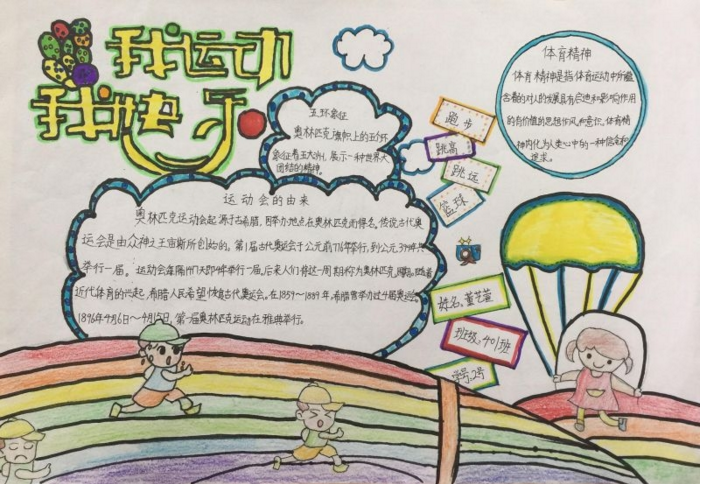 我运动
我快乐
五环象征
奥林匹克旗帜上的五个环
象征着五大洲,展示一种世界大
团结的精神。
体育精神
体育精神是指体育运动中所蕴
含着的对人的发展具有启迪和影响作用
的有价值的思想作风和意识。体育精
神内化为人类心中的一种信念和
追求。
跑步
跳高
跳远
篮球
运动会的由来
奥林匹克运动会起源于古希腊,因举办地点在奥林匹克而得名。传说古代奥
运会是由众神之王宙斯所创始的。第1届古代奥运会于公元前776年举行,到公元394年共
举行一届。运动会每隔1417天即4年举行一届,后来人们将这一周期称为奥林匹克周期。随着
近代体育的兴起,希腊人民希望恢复古代奥运会。在1859~1889年,希腊曾举办过4届奥运会。
1896年4月6日~4月15日,第一届奥林匹克运动在雅典举行。
姓名:董艺萱
班级:401班
学号:2号